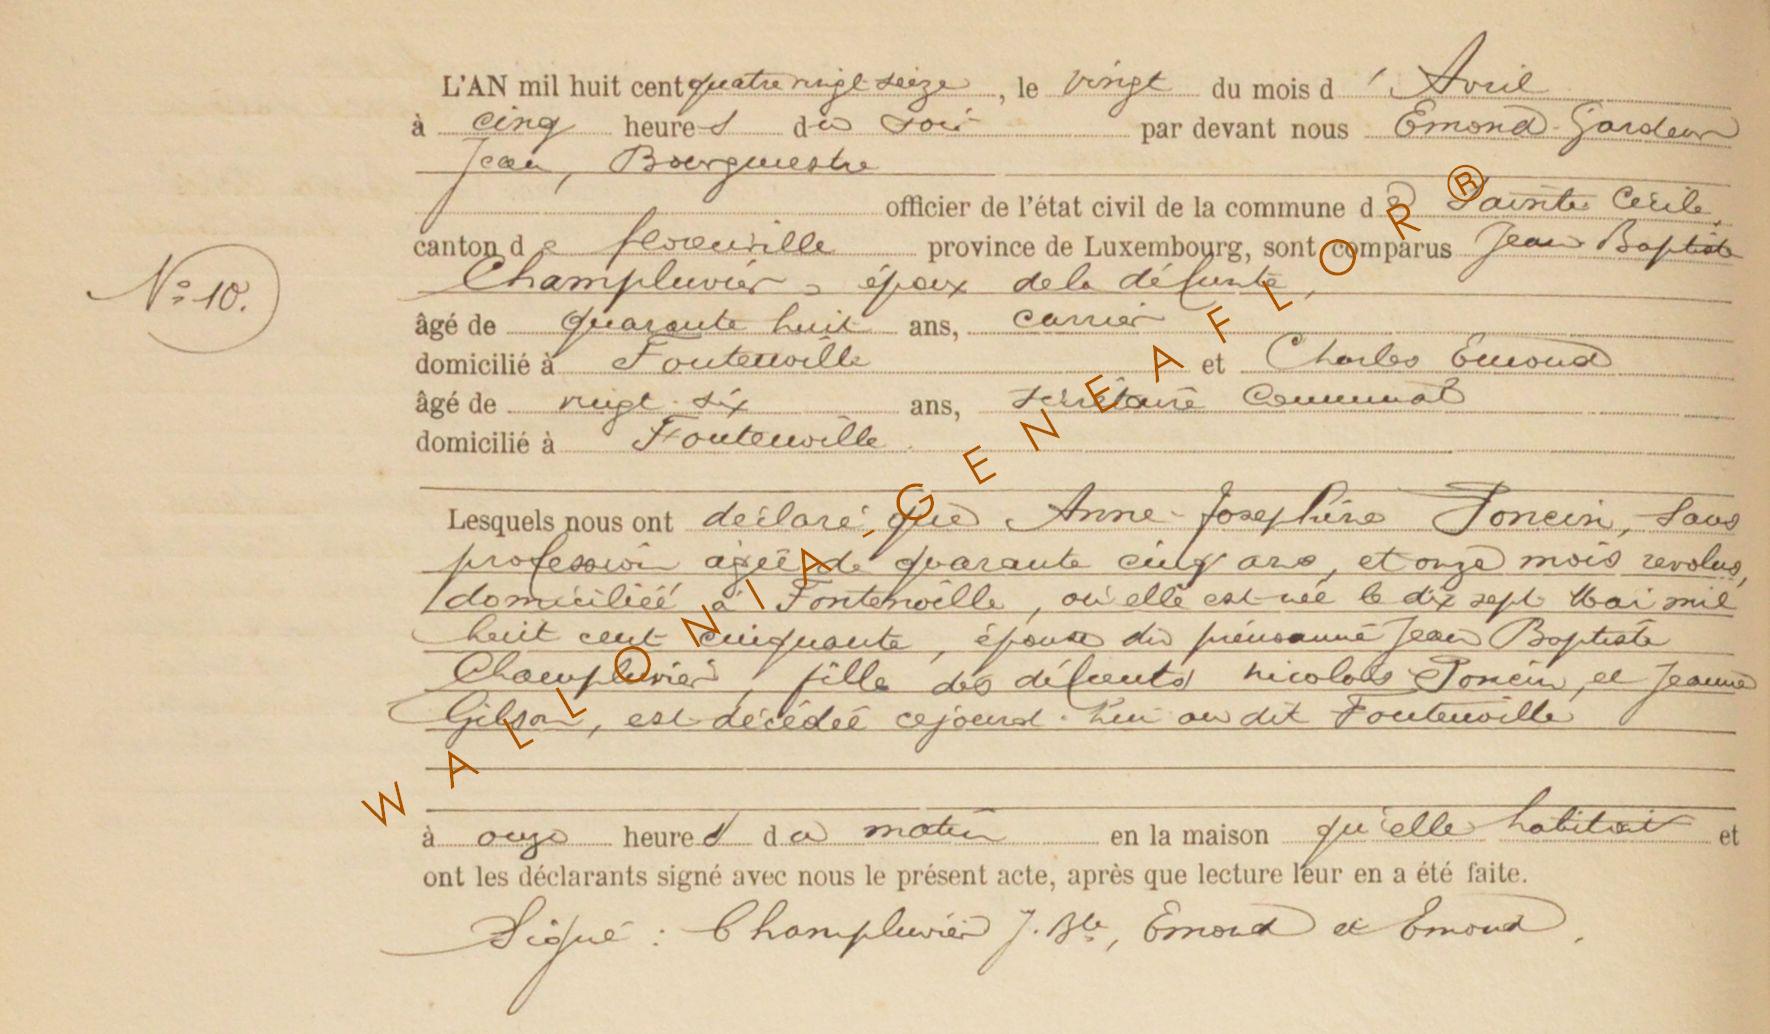 L'AN mil huit cent quatre vingt seize, le vingt du mois d' Avril
à cinq heures du soir par devant nous Emond-Gardeur
Jean, Bourgmestre
officier de l'état civil de la commune de Sainte Cécile,
canton de florenville province de Luxembourg, sont comparus Jean Baptiste
Champluvier, époux de la défunte,
N° 10.
âgé de quarante huit ans, carrier
domicilié à Fontenoille et Charles Emond
âgé de vingt-six ans, secrétaire Communal
domicilié à Fontenoille.
Lesquels nous ont déclaré que Anne-Joséphine Poncin, sans
profession agéé de quarante cinq ans, et onze mois revolus,
domiciliéé à Fontenoille, où elle est née le dix sept Mai mil
huit cent cinquante, épouse du prénommé Jean Baptiste
Champluvier, fille des défunts Nicolas Poncin, et Jeanne
Gilson, est décédéé cejourd'hui au dit Fontenoille
à onze heures du matin en la maison qu'elle habitait et
ont les déclarants signé avec nous le présent acte, après que lecture leur en a été faite.
Signé : Champluvier J. Bte, Emond et Emond.
WALLONIA-GENEAFLOR®